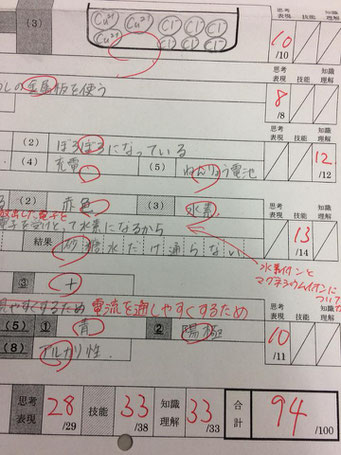 (3)
Cu²⁺ Cu²⁺
Cu²⁺
Cl⁻ Cl⁻ Cl⁻
Cl⁻ Cl⁻ Cl⁻
思考 表現 技能 知識 理解
10
/10
金属板を使う
8
/8
(2) ぼろぼろになっている
(4) 充電 (5) ねんりょう電池
思考 表現 技能 知識 理解
12
/12
(2) 赤色 (3) 水素
電子を受けとって水素になるから
結果 砂糖水だけ通らない
思考 表現 技能 知識 理解
13
/14
水素イオンと
マグネシウムイオンに
ついて
③ +
やすくするため 電流を通しやすくするため
(5) ① 青 ② 陽極
(8) アルカリ性.
思考 表現 技能 知識 理解
10
/11
思考 表現 28 /29 技能 33 /38 知識 理解 33 /33 合計 94 /100